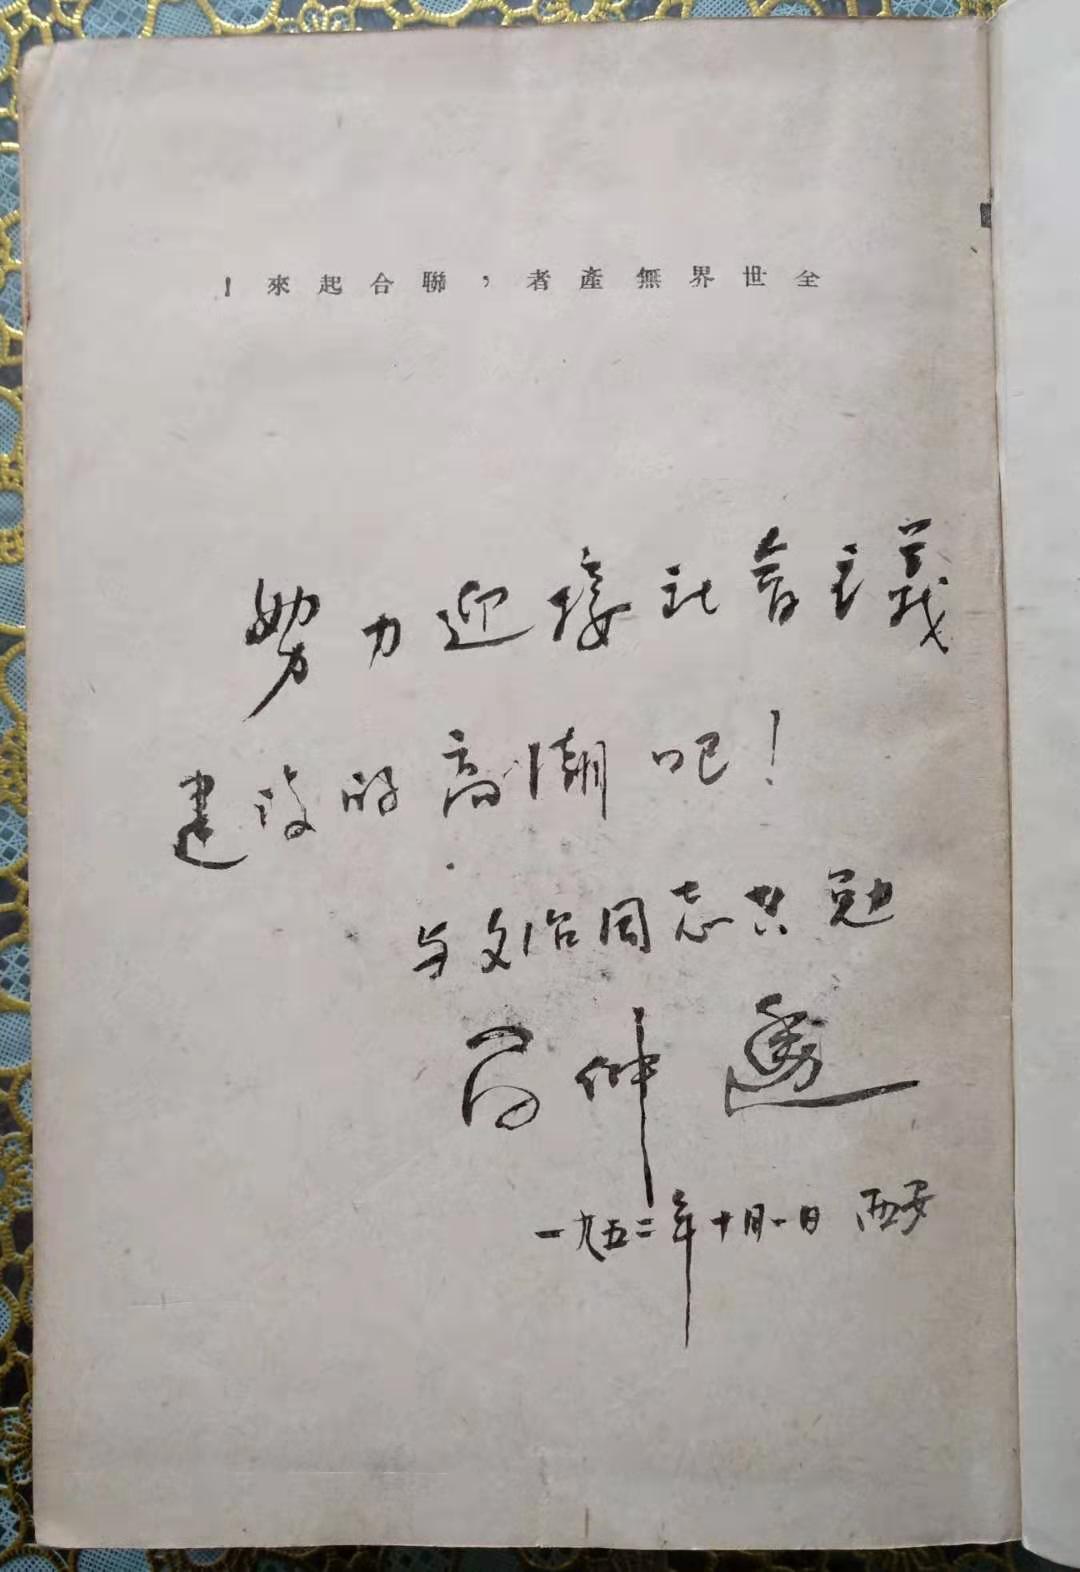 全世界無產者，聯合起來！
努力迎接社會主義
建設的高潮吧！
与文治同志共勉
仲
一九五二年十月一日 西安